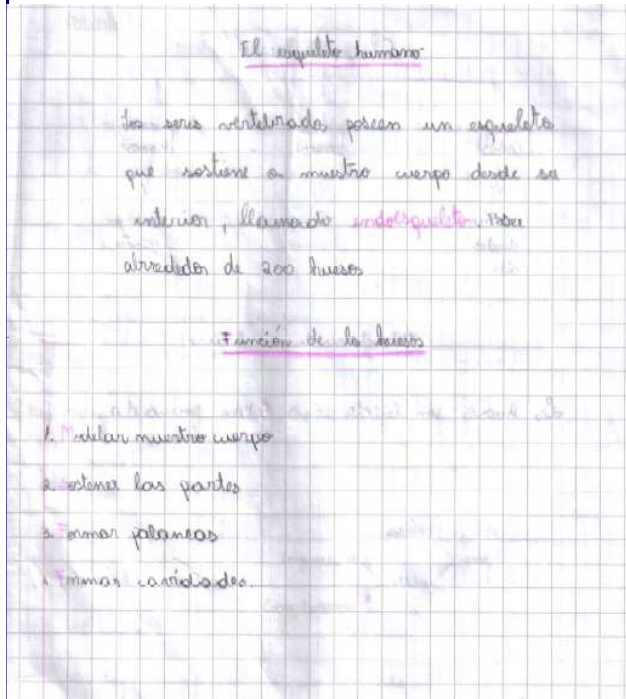 El esqueleto humano
Los seres vertebrados poseen un esqueleto
que sostiene a nuestro cuerpo desde su
interior, llamado endoesqueleto. Posee
alrededor de 200 huesos
Función de lo huesos
1. Modelar nuestro cuerpo
2. Sostener las partes
3. Formar palancas
4. Formar cavidades.